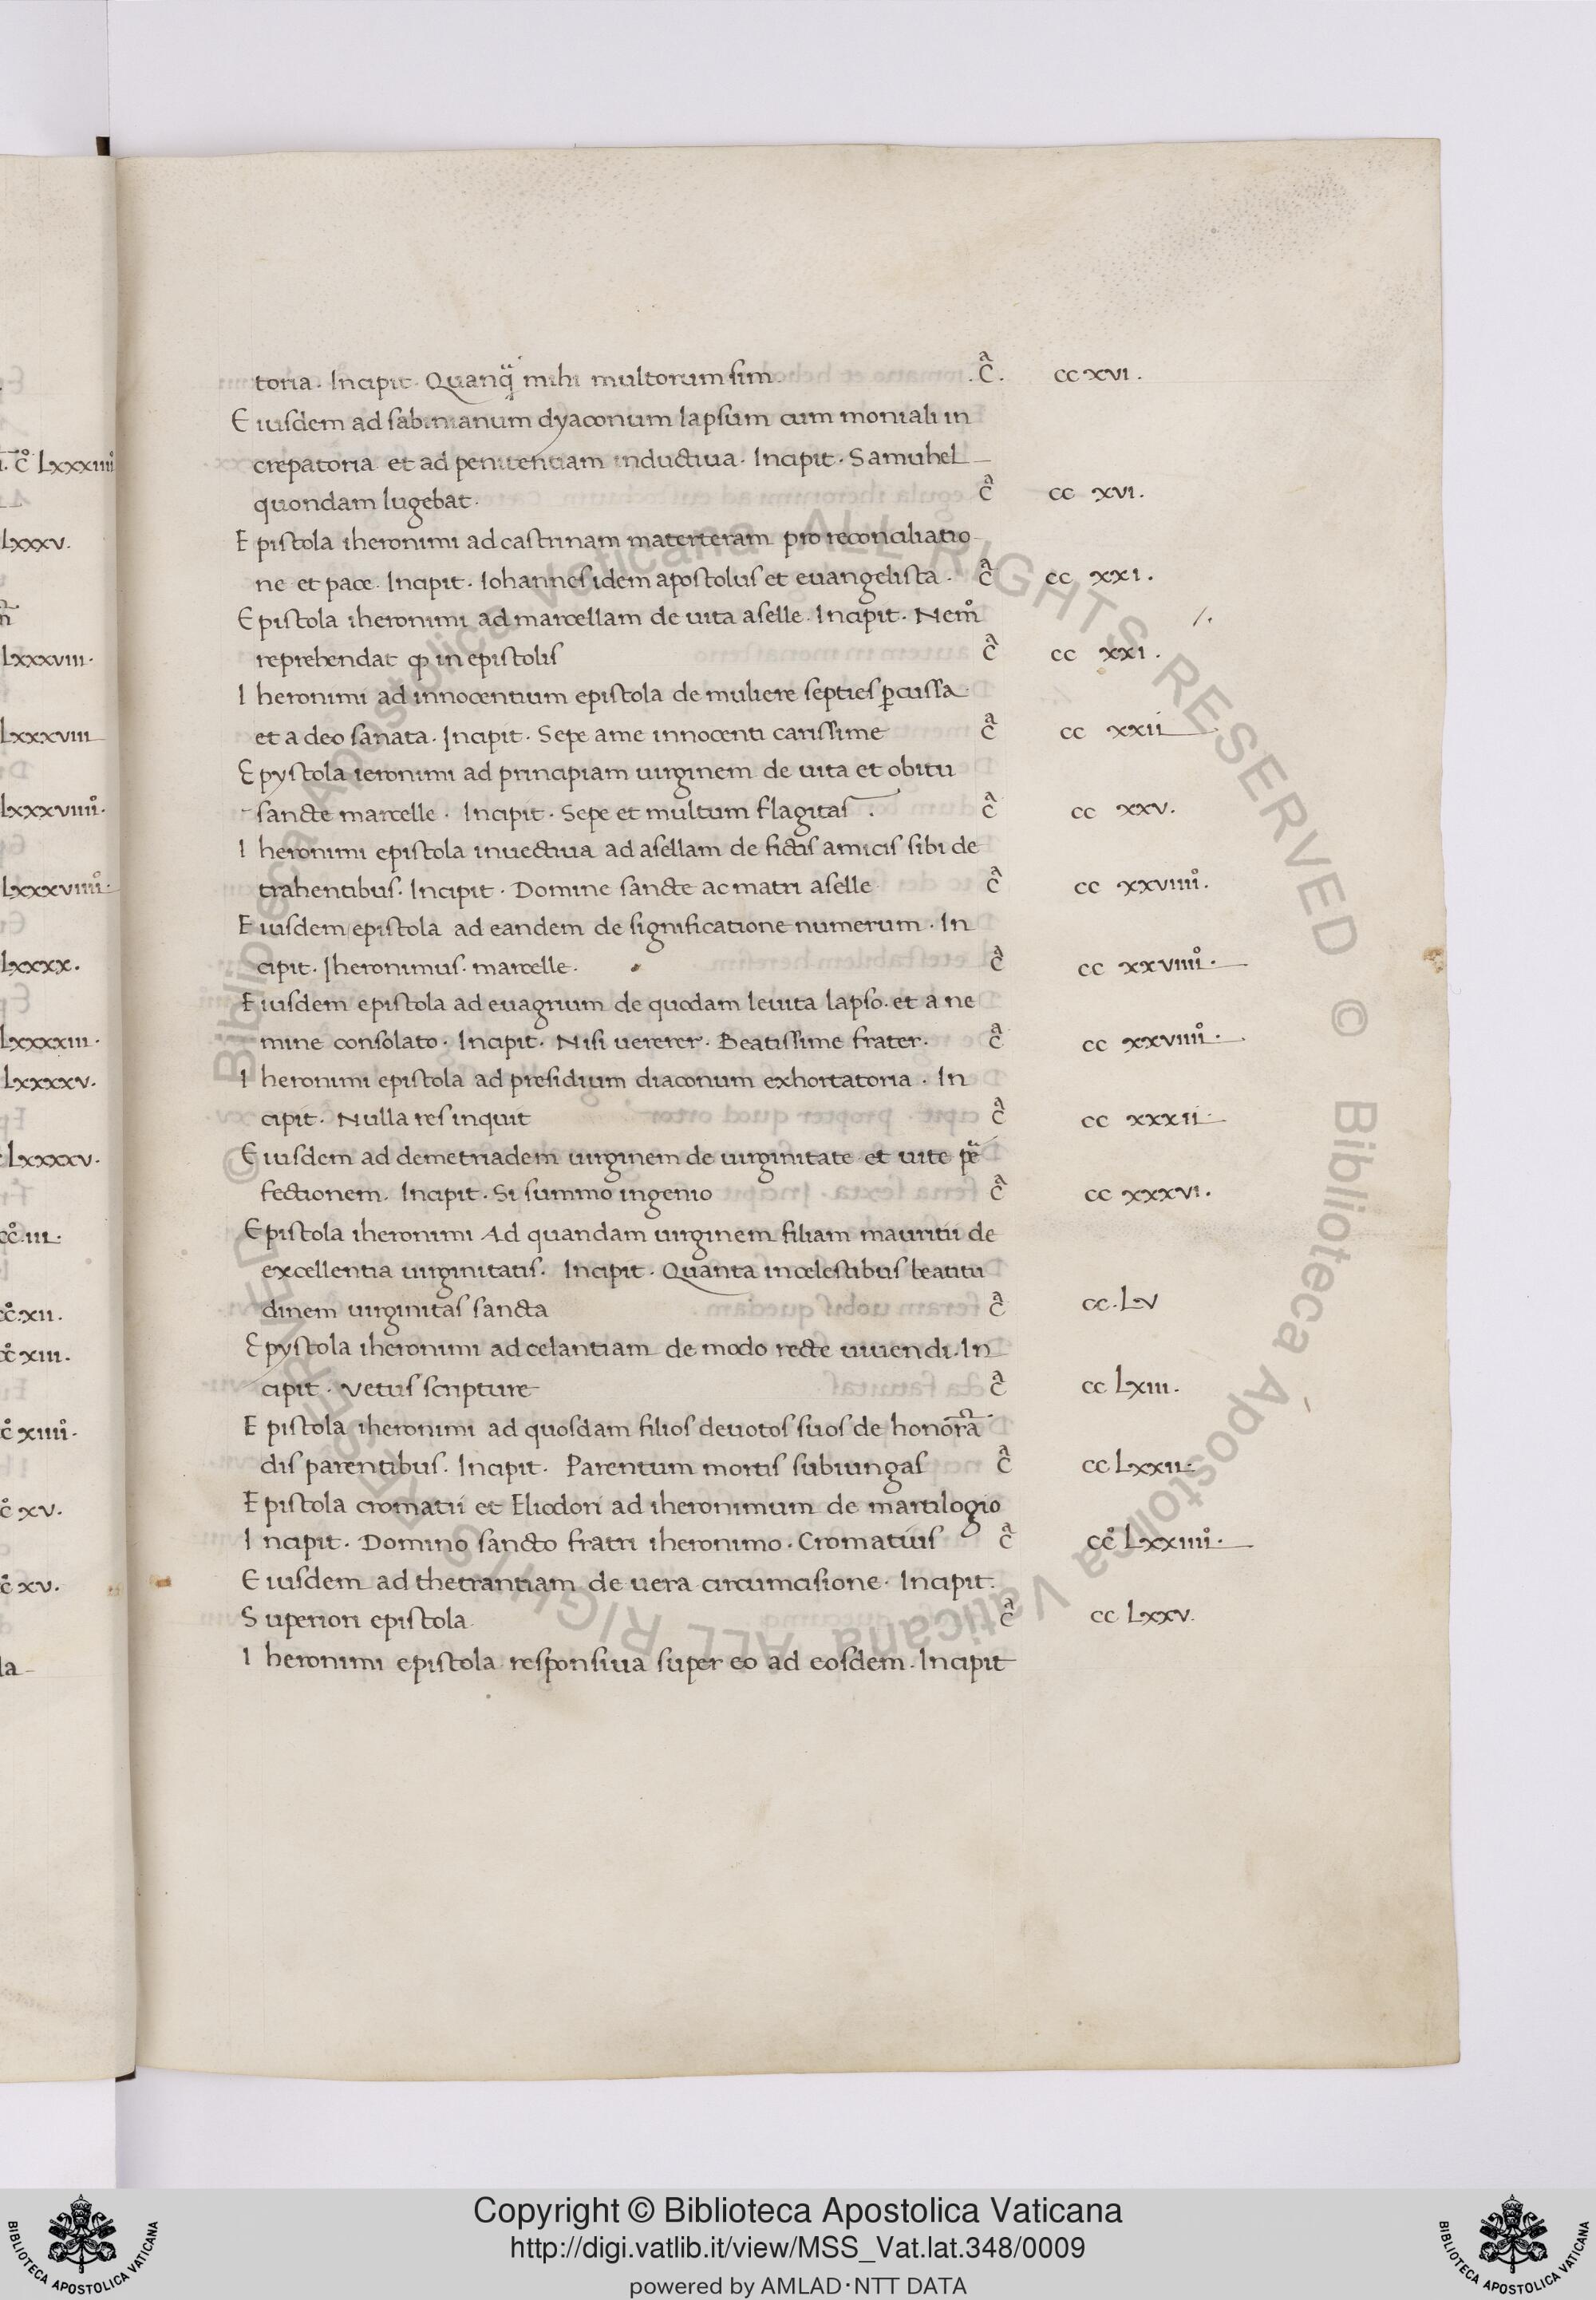 toria. Incipit. Quanq̃ mihi multorum sim. .c̃ᵃ. cc xvi.
Eiusdem ad sabinianum dyaconum lapsum cum moniali in
crepatoria et ad penitentiam inductiua. Incipit. Samuhel
quondam lugebat. cᵃ cc xvi.
Epistola iheronimi ad castrinam materteram pro reconciliatio
ne et pace. Incipit. Iohannes idem apostolus et euangelista. cᵃ cc xxi.
Epistola iheronimi ad marcellam de uita aselle. Incipit. Nemº /.
reprehendat ꝙ in epistolis cᵃ cc xxi.
Iheronimi ad innocentium epistola de muliere septies ꝑcussa
et a deo sanata. Incipit. Sepe a me innocenti carissime cᵃ cc xxii
Epystola ieronimi ad principiam uirginem de uita et obitu
sancte marcelle. Incipit. Sepe et multum flagitas. cᵃ cc xxv.
Iheronimi epistola inuectiua ad asellam de fictis amicis sibi de
trahentibus. Incipit. Domine sancte ac matri aselle cᵃ cc xxviiiiº.
Eiusdem epistola ad eandem de significatione numerum. In
cipit. Iheronimus. marcelle. cᵃ cc xxviiiiº.
Eiusdem epistola ad euagrium de quodam leuita lapso. et a ne
mine consolato. Incipit. Nisi uererer. Beatissime frater. cᵃ cc xxviiiiº.
Iheronimi epistola ad presidium diaconum exhortatoria. In
cipit. Nulla res inquit cᵃ cc xxxii.
Eiusdem ad demetriadem uirginem de uirginitate et uite ꝑe
fectionem. Incipit. Si summo ingenio cᵃ cc xxxvi.
Epistola iheronimi Ad quandam uirginem filiam mauritii de
excellentia uirginitatis. Incipit. Quanta in celestibus beatitu
dinem uirginitas sancta cᵃ cc. Lv
Epystola iheronimi ad celantiam de modo recte uiuendi. In
cipit. Vetus scripture cᵃ cc Lxiii.
Epistola iheronimi ad quosdam filios deuotos suos de honorã
dis parentibus. Incipit. Parentum mortis subiungas cᵃ cc Lxxii.
Epistola cromatii et Eliodori ad iheronimum de martilogio
Incipit. Domino sancto fratri iheronimo. Cromatius cᵃ ccº Lxxiiiiº.
Eiusdem ad thetrantiam de uera circumcisione. Incipit.
Superiori epistola. cᵃ cc Lxxv.
Iheronimi epistola responsiua super eo ad eosdem. Incipit
cº Lxxxiiiiº
Lxxxv.
Lxxxviii.
Lxxxviii
Lxxxviiiiº.
Lxxxviiiiº.
Lxxxx.
Lxxxxiii.
Lxxxxv.
Lxxxxv.
ccº. iii.
ccº. xii.
ccº xiii.
cº xiiiiº.
cº xv.
cº xv.
© Biblioteca Apostolica Vaticana ALL RIGHTS RESERVED © Biblioteca Apostolica Vaticana ALL RIGHTS RESERVED
Copyright © Biblioteca Apostolica Vaticana
http://digi.vatlib.it/view/MSS_Vat.lat.348/0009
powered by AMLAD·NTT DATA
BIBLIOTECA APOSTOLICA VATICANA
BIBLIOTECA APOSTOLICA VATICANA